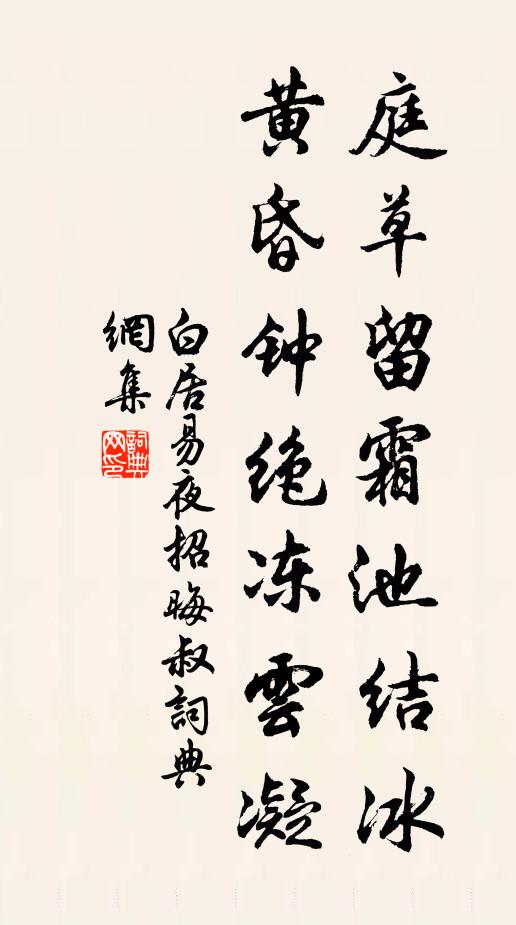 庭草留霜池结冰
黄昏钟绝冻雲凝
白居易夜招晦叔詞典
網集
詞典网印